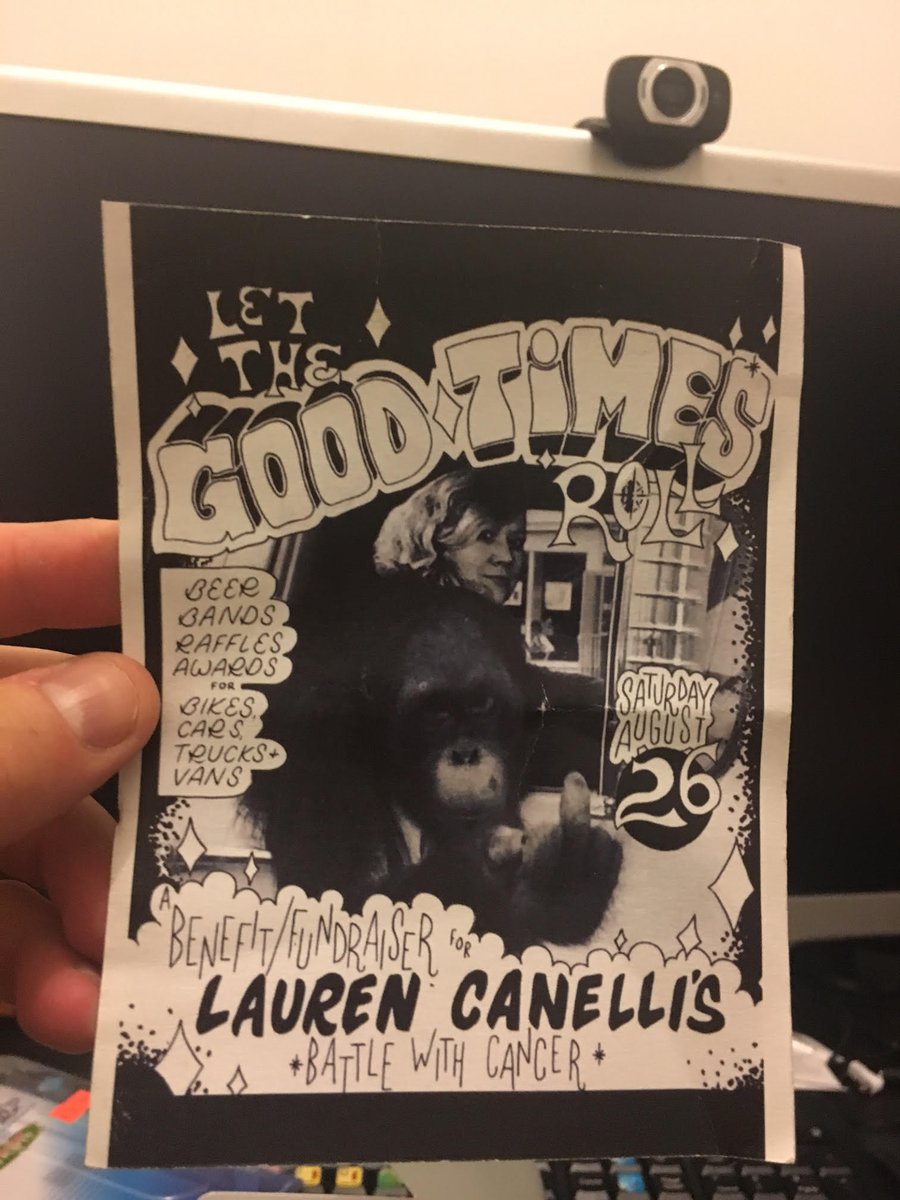 LET
THE
GOOD TiMES
ROLL
BEER
BANDS
RAFFLES
AWARDS
FOR
BIKES,
CARS,
TRUCKS+
VANS
SATURDAY
AUGUST
26
A
BENEFIT/FUNDRAISER FOR
LAUREN CANELLI'S
*BATTLE WITH CANCER*